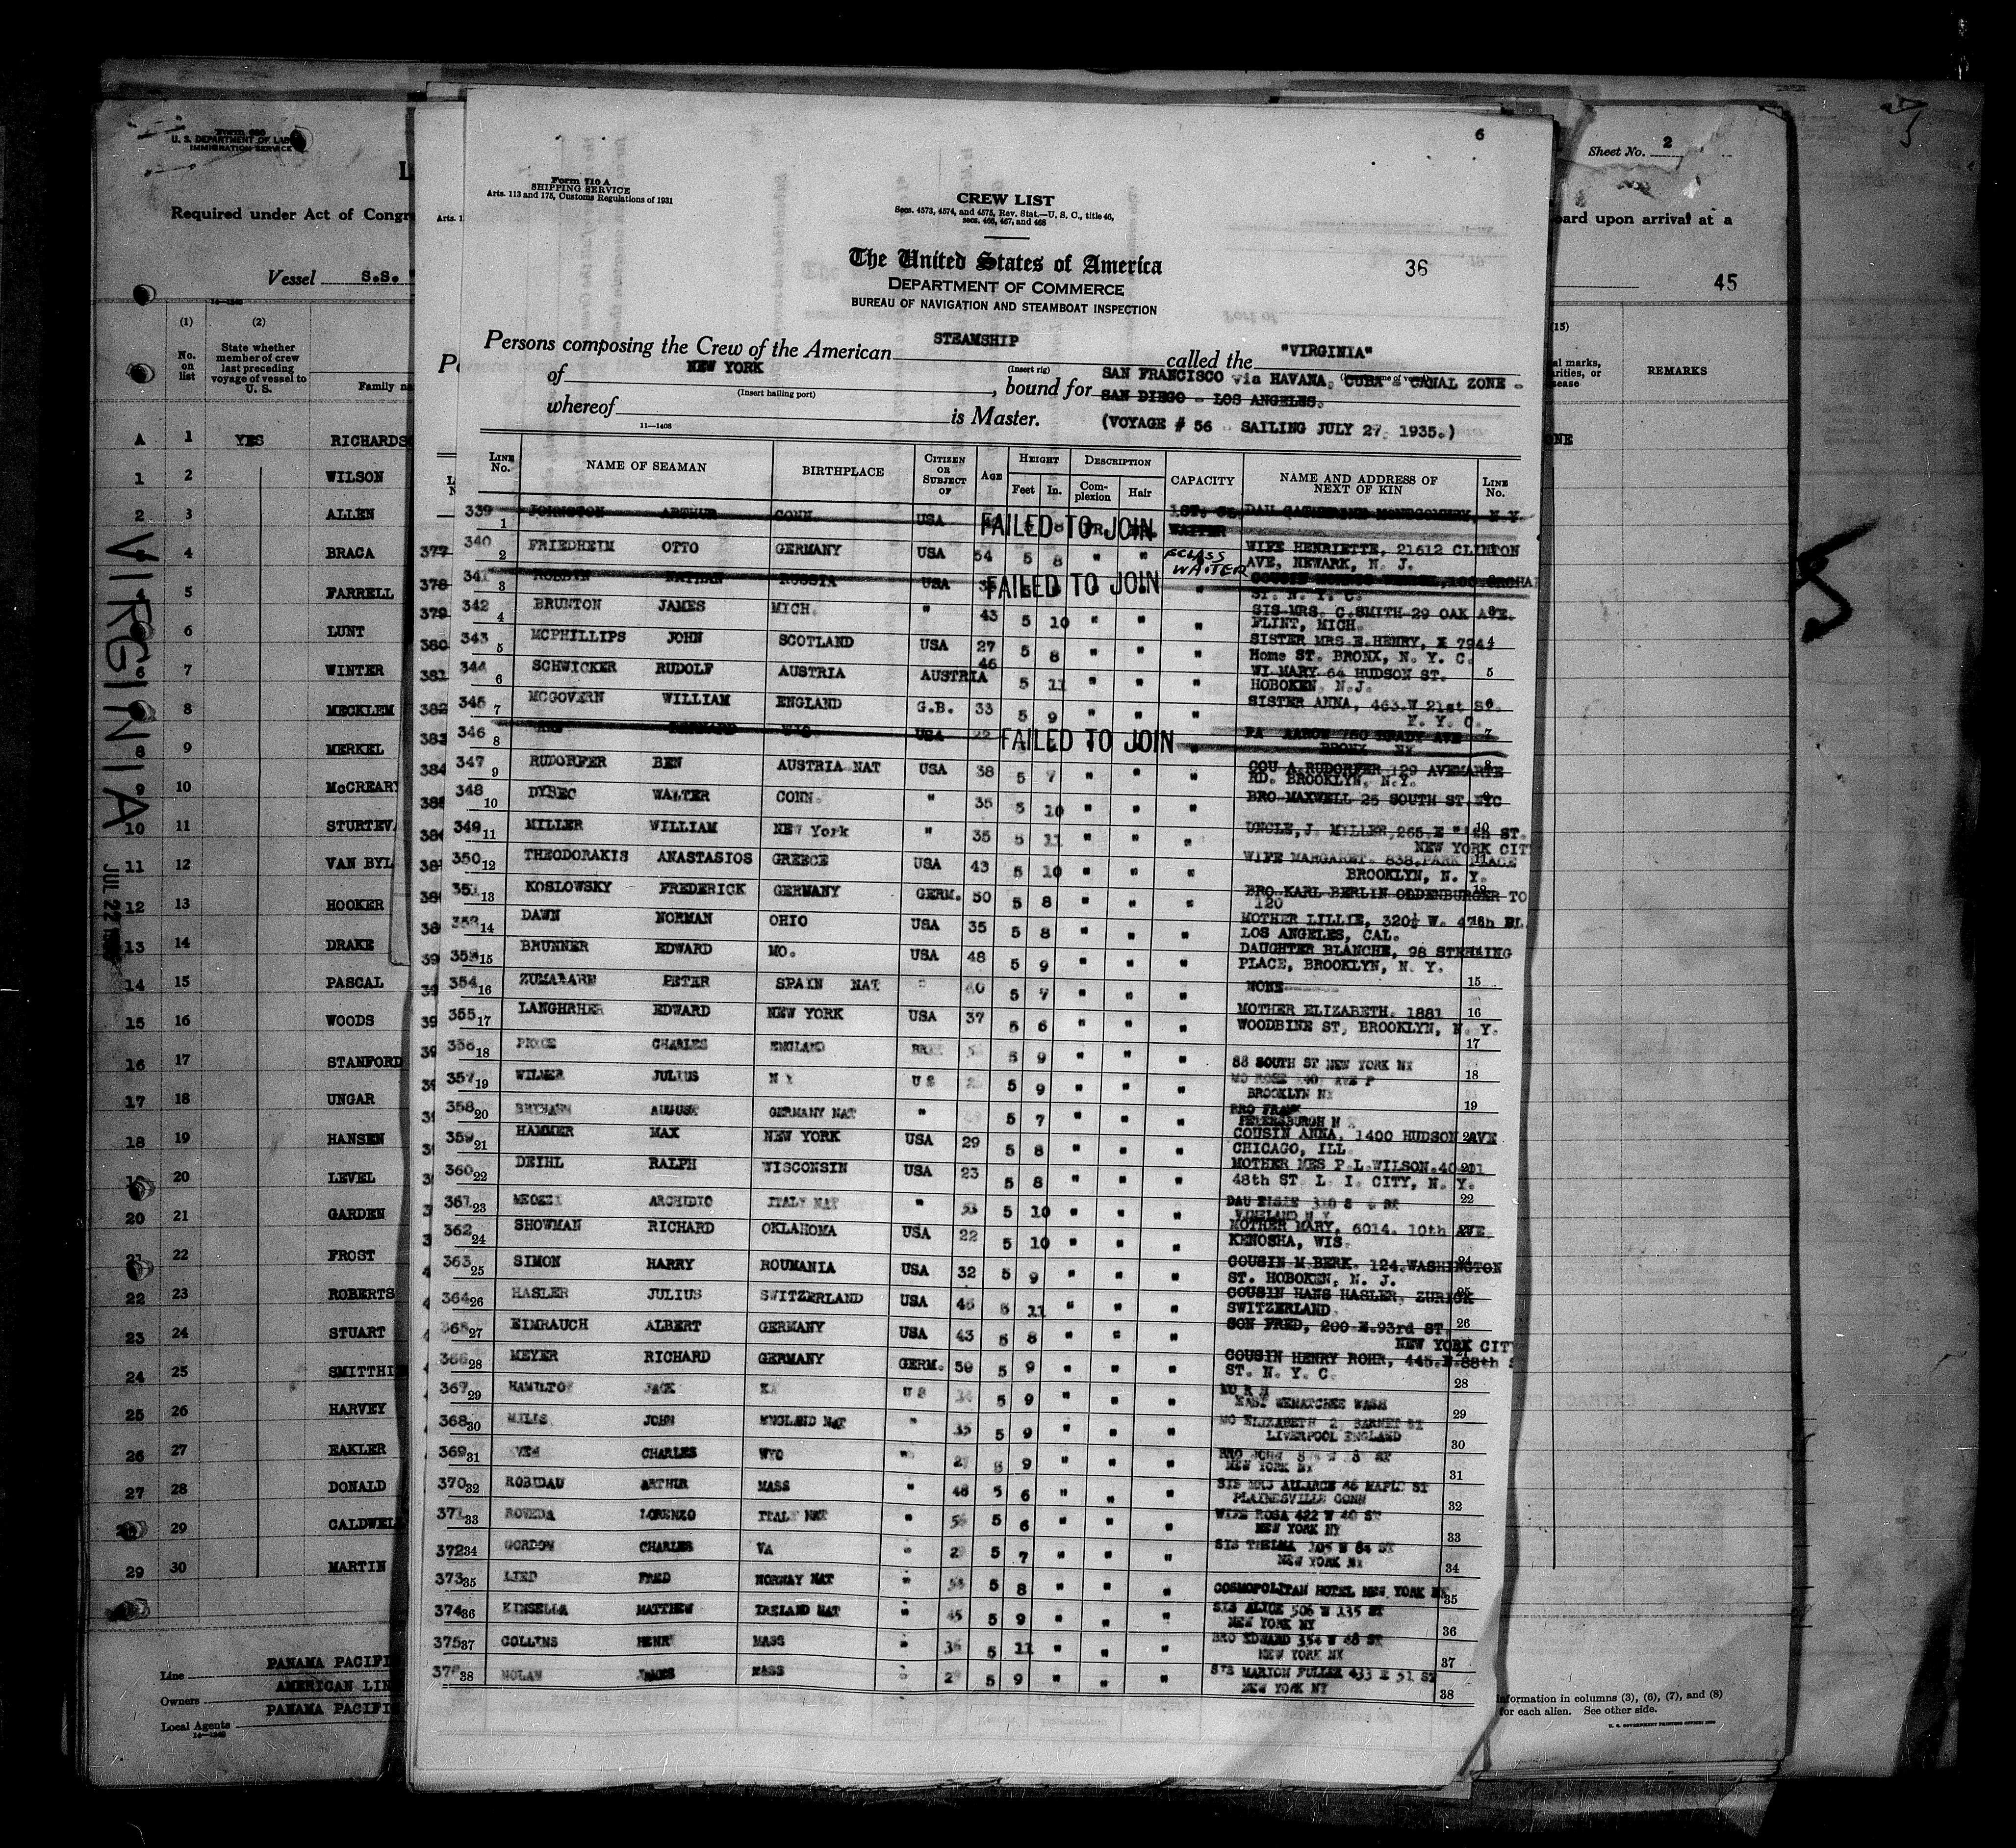 6
Form 710 A
SHIPPING SERVICE
Arts. 113 and 175, Customs Regulations of 1931
CREW LIST
Secs. 4573, 4574, and 4575, Rev. Stat.—U. S. C., title 46,
secs. 466, 467, and 468
The United States of America
36
DEPARTMENT OF COMMERCE
BUREAU OF NAVIGATION AND STEAMBOAT INSPECTION
Persons composing the Crew of the American STEAMSHIP called the "VIRGINIA"
(Insert rig)
of NEW YORK, bound for SAN FRANCISCO via HAVANA, CUBA - CANAL ZONE -
(Insert hailing port)
SAN DIEGO - LOS ANGELES.
whereof is Master. (VOYAGE # 56 SAILING JULY 27, 1935.)
11—1408
LINE No. NAME OF SEAMAN BIRTHPLACE CITIZEN OR SUBJECT OF AGE HEIGHT Feet In. DESCRIPTION Complexion Hair CAPACITY NAME AND ADDRESS OF NEXT OF KIN LINE No.
339 1 JOHNSTON ARTHUR CONN USA FAILED TO JOIN WAITER DAU CATHERINE MONTGOMERY, N.Y.
340 2 FRIEDHEIM OTTO GERMANY USA 54 5 8 " " CLASS WAITER WIFE HENRIETTE, 21612 CLINTON
AVE, NEWARK, N. J.
341 3 NATHAN RUSSIA USA FAILED TO JOIN "
ST. N. Y. C.
342 4 BRUNTON JAMES MICH. " 43 5 10 " " " SIS MRS. C.SMITH-29 OAK AVE.
FLINT, MICH.
343 5 MCPHILLIPS JOHN SCOTLAND USA 27 5 8 " " " SISTER MRS.E.HENRY, 794 4
Home ST. BRONX, N. Y. C.
344 6 SCHWICKER RUDOLF AUSTRIA AUSTRIA 46 5 11 " " " WI MARY 64 HUDSON ST. 5
HOBOKEN, N.J.
345 7 MCGOVERN WILLIAM ENGLAND G.B. 33 5 9 " " " SISTER ANNA, 463.W 21st St. 6
N. Y. C.
346 8 USA FAILED TO JOIN " PA AARON 780 BRADY AVE 7
BRONX NY
347 9 RUDORFER BEN AUSTRIA NAT USA 38 5 7 " " " COU A.RUDORFER 129 AVEMARTE 8
RD. BROOKLYN, N.Y.
348 10 DYBEC WALTER CONN. " 35 5 10 " " " BRO MAXWELL 25 SOUTH ST.NYC 9
349 11 MILLER WILLIAM NEW York " 35 5 11 " " " UNCLE,J. MILLER,265.E th ST. 10
NEW YORK CIT
350 12 THEODORAKIS ANASTASIOS GREECE USA 43 5 10 " " " WIFE MARGARET. 838.PARK PLACE 11
BROOKLYN, N. Y.
351 13 KOSLOWSKY FREDERICK GERMANY GERM. 50 5 8 " " " BRO KARL BERLIN ODDENBURGER TO 12
120
352 14 DAWN NORMAN OHIO USA 35 5 8 " " " MOTHER LILLIE, 320½ W. 47th PL.
LOS ANGELES, CAL.
353 15 BRUNNER EDWARD MO. USA 48 5 9 " " " DAUGHTER BLANCHE, 98 STERLING
PLACE, BROOKLYN, N. Y.
354 16 PETER SPAIN NAT " 40 5 7 " " " NONE 15
355 17 LANGHRHER EDWARD NEW YORK USA 37 5 6 " " " MOTHER ELIZABETH. 1881 16
WOODBINE ST, BROOKLYN, N. Y.
356 18 CHARLES ENGLAND 5 9 " " " 88 SOUTH ST NEW YORK NY 17
357 19 WILMER JULIUS N Y U S 5 9 " " " MO ROSE AVE P 18
BROOKLYN NY
358 20 AUGUST GERMANY NAT " 5 7 " " " BRO FRANK 19
PETERSBURGH N
359 21 HAMMER MAX NEW YORK USA 29 5 8 " " " COUSIN ANNA, 1400 HUDSON AVE
CHICAGO, ILL.
360 22 DEIHL RALPH WISCONSIN USA 23 5 8 " " " MOTHER MES P.L.WILSON.
48th ST. L. I. CITY, N. Y.
361 23 MEOZZI ARCHIDIO ITALY NAT " 53 5 10 " " " DAU ELSIE 22
VINELAND N Y
362 24 SHOWMAN RICHARD OKLAHOMA USA 22 5 10 " " " MOTHER MARY, 6014. 10th AVE
KENOSHA, WIS.
363 25 SIMON HARRY ROUMANIA USA 32 5 9 " " " COUSIN M.BERK. 124.WASHINGTON 24
ST. HOBOKEN, N. J.
364 26 HASLER JULIUS SWITZERLAND USA 46 5 11 " " " COUSIN HANS HASLER. ZURICK 25
SWITZERLAND.
365 27 EIMRAUCH ALBERT GERMANY USA 43 5 8 " " " SON FRED, 200 E.93rd ST. 26
NEW YORK CIT
366 28 MEYER RICHARD GERMANY GERM. 50 5 9 " " " COUSIN HENRY ROHR, 445.E.88th
ST. N. Y. C.
367 29 HAMILTON JACK U S 5 9 " " " 28
EAST WENATCHEE WASH
368 30 MILLS JOHN ENGLAND NAT " 35 5 9 " " " MO ELIZABETH 2 BARNET ST 29
LIVERPOOL ENGLAND
369 31 CHARLES WYO " 5 9 " " " BRO JOHN 30
NEW YORK NY
370 32 ROBIDAU ARTHUR MASS " 48 5 6 " " " SIS MRS ALLARCE 46 MAPLE ST 31
PLAINESVILLE CONN
371 33 ROVEDA LORENZO ITALY NAT " 5 6 " " " WIFE ROSA 422 W 40 ST 32
NEW YORK NY
372 34 GORDON CHARLES VA " 5 7 " " " SIS THELMA 305 W 84 ST 33
NEW YORK NY
373 35 LIED FRED NORWAY NAT " 5 8 " " " COSMOPOLITAN HOTEL NEW YORK NY 35
374 36 KINSELLA MATTHEW IRELAND NAT " 45 5 9 " " " SIS ALICE 506 W 135 ST
NEW YORK NY 36
375 37 COLLINS HENRY MASS " 36 5 11 " " " BRO EDWARD 354 W 48 ST
NEW YORK NY 37
376 38 NOLAN JAMES MASS 5 9 " " " SIS MARION FULLER 433 E 51 ST
NEW YORK NY 38
U. S. DEPARTMENT OF LAB
IMMIGRATION SERVICE
Required under Act of Congr
Vessel S.S. "
(1) (2)
No. on list
State whether member of crew last preceding voyage of vessel to U. S.
Family na
A 1 YES RICHARDS
1 2 WILSON
2 3 ALLEN
4 BRACA
5 FARRELL
6 LUNT
6 7 WINTER
8 MECKLEM
8 9 MERKEL
9 10 McCREARY
10 11 STURTEV
11 12 VAN BYL
12 13 HOOKER
13 14 DRAKE
14 15 PASCAL
15 16 WOODS
16 17 STANFORD
17 18 UNGAR
18 19 HANSEN
20 LEVEL
20 21 GARDEN
21 22 FROST
22 23 ROBERTS
23 24 STUART
24 25 SMITTHI
25 26 HARVEY
26 27 EAKLER
27 28 DONALD
29 CALDWEL
29 30 MARTIN
VIRGINIA
JUL 22
Line PANAMA PACIFI
Owners AMERICAN LIN
Local Agents PANAMA PACIFI
14—1249
Sheet No. 2
oard upon arrival at a
45
(15)
al marks,
arities, or
sease
REMARKS
ONE
information in columns (3), (6), (7), and (8)
for each alien. See other side.
U. S. GOVERNMENT PRINTING OFFICE